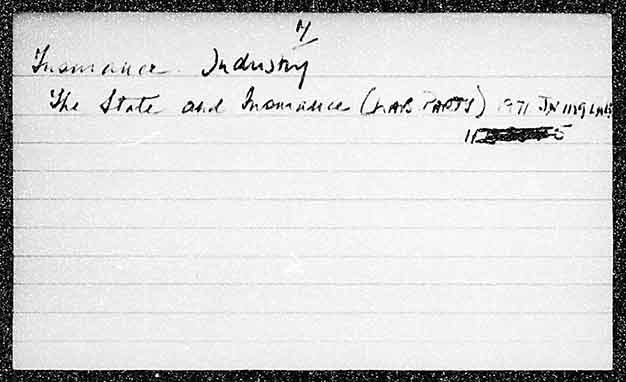 7/
Insurance Industry
The State and Insurance (LAB PARTY) 1971 JN 1129